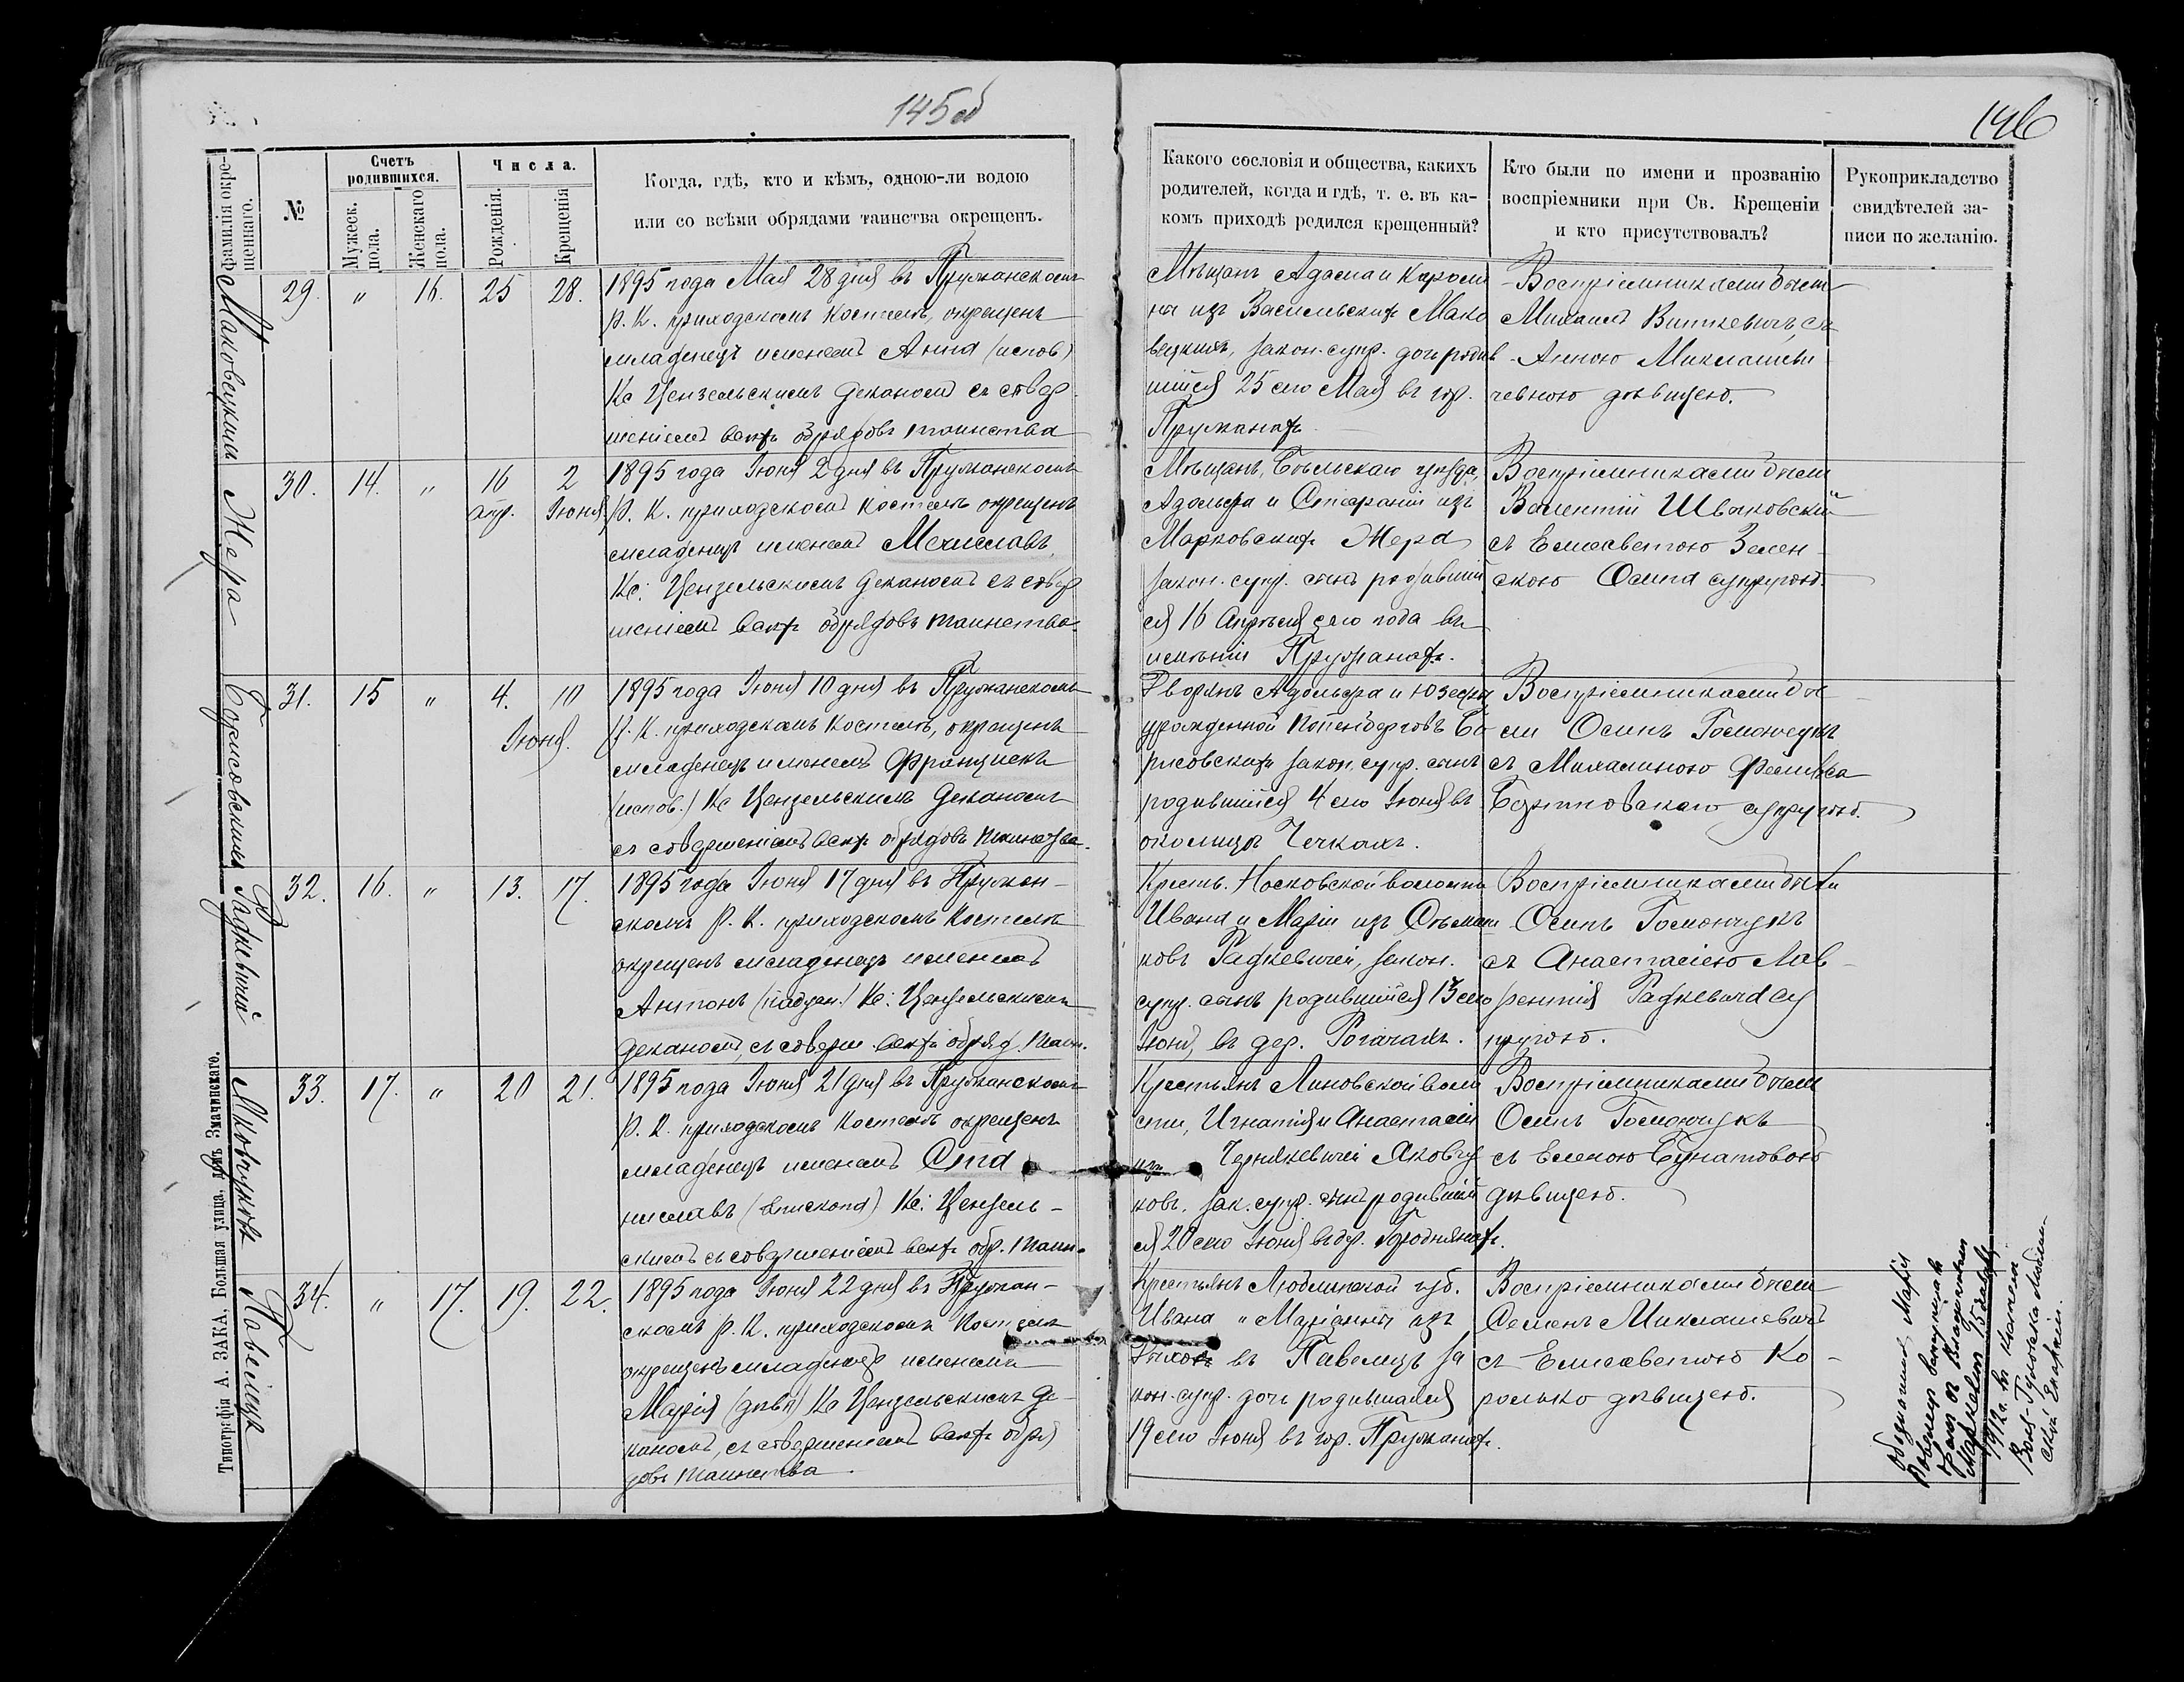 145 об
146
фамилія окре-
щеннаго.
№
Счетъ
родившихся.
Мужеск.
пола.
Женскаго
пола.
Числа.
Рожденія.
Крещенія
Когда, гдѣ, кто и кѣмъ, одною-ли водою
или со всѣми обрядами таинства окрещенъ.
Какого сословія и общества, какихъ
родителей, когда и гдѣ, т. е. въ ка-
комъ приходѣ родился крещенный?
Кто были по имени и прозванію
воспріемники при Св. Крещеніи
и кто присутствовалъ?
Рукоприкладство
свидѣтелей за-
писи по желанію.
Маковецкихъ
29. " 16. 25 28.
1895 года Мая 28 дня въ Пружанскомъ
Р. К. приходскомъ костелѣ, окрещенъ
младенецъ именемъ Анна (испов)
Кс Цензельскимъ Деканомъ съ совер
шеніемъ всѣхъ обрядовъ таинства
Мѣщанъ Адама и Кароли
ны изъ Василевскихъ Мако
вецкихъ, закон. супр. дочь родив
шійся 25 сего Мая въ гор.
Пружанахъ
Воспріемниками были
Михаилъ Виткевичъ съ
Анною Миклашеви
чевною дѣвицею.
Жера
30. 14. " 16 2
апр. Іюня
1895 года Іюня 2 дня въ Пружанскомъ
Р. К. приходскомъ костелѣ окрещенъ
младенецъ именемъ Мечиславъ
Кс: Цензельскимъ Деканомъ съ совер
шеніемъ всѣхъ обрядовъ таинства.
Мѣщанъ, Бѣльскаго уѣзда,
Адольфа и Стефаніи изъ
Марковскихъ Жера
закон. супр. сынъ родившій
ся 16 Апрѣля сего года въ
имѣніи Пружанахъ.
Воспріемниками были
Валентій Шваковскій
съ Елисаветою Зелен
скою Осипа супругою.
Борисовскихъ
31. 15 " 4. 10
Іюня.
1895 года Іюня 10 дня въ Пружанскомъ
Р. К. приходскомъ костелѣ, окрещенъ
младенецъ именемъ Францискъ
(испов.) Кс Цензельскимъ Деканомъ
съ совершеніемъ всѣхъ обрядовъ таинства.
Дворянъ Адольфа и Юзефы
урожденной Попенберговъ Бо
рисовскихъ закон. супр. сынъ
родившійся 4 сего Іюня въ
околицѣ Чечкахъ.
Воспріемниками бы
ли Осипъ Гомончукъ
съ Михалиною Феликса
супругою.
Радкевичей
32. 16. " 13. 17.
1895 года Іюня 17 дня въ Пружан-
скомъ Р. К. приходскомъ костелѣ
окрещенъ младенецъ именемъ
Антонъ (падуан.) Кс: Цензельскимъ
Деканомъ, съ соверш. всѣхъ обряд. таин.
Крестьян. Носковской волости
Ивана и Маріи изъ
ковъ Радкевичей, закон.
супр. сынъ родившійся 13 сего
Іюня, въ дер. Рогачахъ.
Воспріемниками были
Осипъ Гомончукъ
съ Анастасіею Лав
рентія Радкевича су
пругою.
Яковчуковъ
33. 17. " 20 21.
1895 года Іюня 21 дня въ Пружанскомъ
Р. К. приходскомъ костелѣ окрещенъ
младенецъ именемъ Ста
ниславъ (Епископа) Кс: Цензель-
скимъ съ совершеніемъ всѣхъ обр. таин.
Крестьянъ Линовской воло
сти, Игнатія и Анастасіи
изъ Чернякевичей Яковчу
ковъ, зак. супр. сынъ родившій
ся 20 сего Іюня въ дер. Городнянахъ.
Воспріемниками были
Осипъ Гомончукъ
съ Еленою
дѣвицею.
Павелицъ
34. " 17. 19. 22.
1895 года Іюня 22 дня въ Пружан-
скомъ Р. К. приходскомъ костелѣ
окрещенъ младенецъ именемъ
Марія (дѣва) Кс Цензельскимъ Де-
каномъ, съ совершеніемъ всѣхъ обря
довъ таинства.
Крестьянъ Люблинской губ.
Ивана и Маріанны изъ
въ Павелицъ за
кон. супр. дочь родившаяся
19 сего Іюня въ гор. Пружанахъ.
Воспріемниками были
Семенъ Миклашевичъ
съ Елисаветою Ко-
ролько дѣвицею.
Марія
Павелицъ вступила въ
бракъ съ Владиславомъ
1912 г. въ костелѣ
Типографія А. ЗАКА, Большая улица, домъ Змачинскаго.